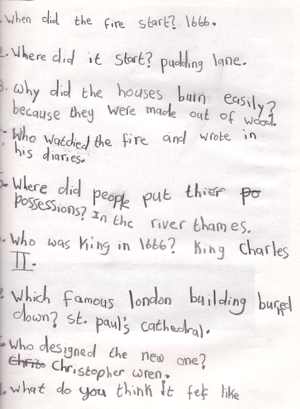 1. When did the fire start? 1666.
2. Where did it start? pudding lane.
3. Why did the houses burn easily?
because they were made out of wood.
Who watched the fire and wrote in
his diaries.
5. Where did people put thier po
possessions? In the river thames.
6. Who was King in 1666? King Charles
II.
which famous london building burned
down? st. paul's cathedral.
who designed the new one?
Christopher wren.
what do you think it felt like